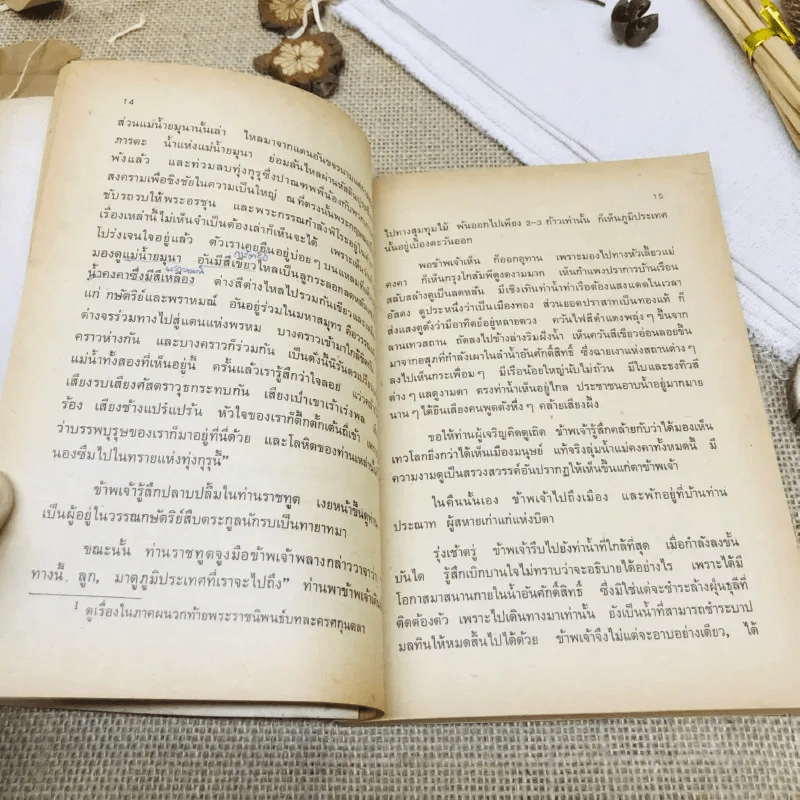 14
ส่วนแม่น้ำยมุนานั้นเล่า ไหลมาจากแดนอันขจรนามแต่
ภารตะ น้ำแห่งแม่น้ำยมุนา ย่อมลันไหลผ่าน
พังแล้ว และท่วมลบทุ่งกุรุซึ่งปาณฑพพี่น้องกับ
สงครามเพื่อชิงชัยในความเป็นใหญ่ ณที่ตรงนั้น
ขับรถรบให้พระอรชุน และพระกรรณกำลังพิโรธอยู่
เรื่องเหล่านี้ไม่เห็นจำเป็นต้องเล่าก็เห็นจะได้ เพราะ
โปร่งเจนใจอยู่แล้ว ตัวเราเคยยืนอยู่บ่อยๆ บนแหลม
มองดูแม่น้ำยมุนา อันมีสีเขียวไหลเป็นลูกระลอก
น้ำคงคาซึ่งมีสีเหลือง ต่างสีต่างไหลไปรวมกัน
แก่ กษัตริย์และพราหมณ์ อันอยู่ร่วมในมหาสมุทร
ต่างจรร่วมทางไปสู่แดนแห่งพรหม บางคราวเข้ามาใกล้
คราวห่างกัน และบางคราวก็ร่วมกัน เป็นดังนี้นิรันดร
แม่น้ำทั้งสองที่เห็นอยู่นี้ ครั้นแล้วเรารู้สึกว่าใจลอย
เสียงรบเสียงศัสตราวุธกระทบกัน เสียงเป่าเขาเร้าเร่งพล
ร้อง เสียงช้างแปร๋แปร้น หัวใจของเราก็ตึ้กตั้กเต้นถี่เข้า
ว่าบรรพบุรุษของเราก็มาอยู่ที่นี่ด้วย และโลหิตของท่านเหล่านั้น
นองซึมไปในทรายแห่งทุ่งกุรุนี้”
ข้าพเจ้ารู้สึกปลาบปลื้มในท่านราชทูต เงยหน้าขึ้นดูท่าน
เป็นผู้อยู่ในวรรณกษัตริย์สืบตระกูลนักรบเป็นทายาทมา
ขณะนั้น ท่านราชทูตจูงมือข้าพเจ้าพลางกล่าววาจาว่า
ทางนี้ ลูก, มาดูภูมิประเทศที่เราจะไปถึง” ท่านพาข้าพเจ้า
1 ดูเรื่องในภาคผนวกท้ายพระราชนิพนธ์บทละครศกุนตลา
15
ไปทางสุมทุมไม้ พ้นออกไปเพียง 2-3 ก้าวเท่านั้น ก็เห็นภูมิประเทศ
นั้นอยู่เบื้องตะวันออก
พอข้าพเจ้าเห็น ก็ออกอุทาน เพราะมองไปทางหัวเลี้ยวแม่
คงคา ก็เห็นกรุงโกสัมพีดูงดงามมาก เห็นกำแพงปราการบ้านเรือน
สลับสล้างดูเป็นลดหลั่น มีเชิงเทินท่าน้ำท่าเรือต้องแสงแดดในเวลา
อัสดง ดูประหนึ่งว่าเป็นเมืองทอง ส่วนยอดปราสาทเป็นทองแท้ ก็
ส่งแสงดูดังว่ามีอาทิตย์อยู่หลายดวง ควันไฟสีดำแดงพลุ่งๆ ขึ้นจาก
ลานเทวสถาน ถัดลงไปข้างล่างริมฝั่งน้ำ เห็นควันสีเขียวอ่อนลอยขึ้น
มาจากอสุภที่กำลังเผาในลำน้ำอันศักดิ์สิทธิ์ ซึ่งฉายเงาแห่งสถานต่างๆ
ลงไปเห็นกระเพื่อมๆ มีเรือน้อยใหญ่นับไม่ถ้วน มีใบและธงทิวสี
ต่างๆ แลดูงามตา ตรงท่าน้ำเห็นอยู่ไกล ประชาชนอาบน้ำอยู่มากมาย
นานๆ ได้ยินเสียงคนพูดดังหึ่งๆ คล้ายเสียงผึ้ง
ขอให้ท่านผู้เจริญคิดดูเถิด ข้าพเจ้ารู้สึกคล้ายกับว่าได้มองเห็น
เทวโลกยิ่งกว่าได้เห็นเมืองมนุษย์ แท้จริงลุ่มน้ำแม่คงคาทั้งหมดนี้ มี
ความงามดูเป็นสรวงสวรรค์อันปรากฏให้เห็นขึ้นแก่ตาข้าพเจ้า
ในคืนนั้นเอง ข้าพเจ้าไปถึงเมือง และพักอยู่ที่บ้านท่าน
ประณาท ผู้สหายเก่าแก่แห่งบิดา
รุ่งเช้าตรู่ ข้าพเจ้ารีบไปยังท่าน้ำที่ใกล้ที่สุด เมื่อกำลังลงขั้น
บันได รู้สึกเบิกบานใจไม่ทราบว่าจะอธิบายได้อย่างไร เพราะได้มี
โอกาสมาสนานกายในน้ำอันศักดิ์สิทธิ์ ซึ่งมิใช่แต่จะชำระล้างฝุ่นธุลีที่
ติดต้องตัว เพราะไปเดินทางมาเท่านั้น ยังเป็นน้ำที่สามารถชำระบาป
มลทินให้หมดสิ้นไปได้ด้วย ข้าพเจ้าจึงไม่แต่จะอาบอย่างเดียว, ได้